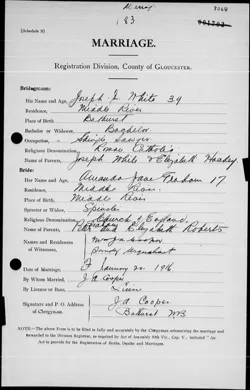 183
[Schedule B]
MARRIAGE.
Registration Division, County of GLOUCESTER.
Bridegroom:
His Name and Age, Joseph White 39
Residence, Middle River
Place of Birth, Bathurst
Bachelor or Widower, Bachelor
Occupation, Sawyer
Religious Denomination, Roman Catholic
Name of Parents, Joseph White & Elizabeth
Bride:
Her Name and Age, Amanda Jane 17
Residence, Middle River
Place of Birth, Middle River
Spinster or Widow, Spinster
Religious Denomination, Church of England
Name of Parents, Elizabeth Roberts
Names and Residences of Witnesses, Mrs J A Cooper
Urquhart
Date of Marriage, January 20 1916
By Whom Married, J A Cooper
By License or Banns,
Signature and P. O. Address of Clergyman. J A Cooper
Bathurst NB
NOTE.—The above Form is to be filled in fully and accurately by the Clergyman solemnizing the marriage and forwarded to the Division Registrar, as required by Act of Assembly 50th Vic., Cap. V., intituled "An Act to provide for the Registration of Births, Deaths and Marriages.